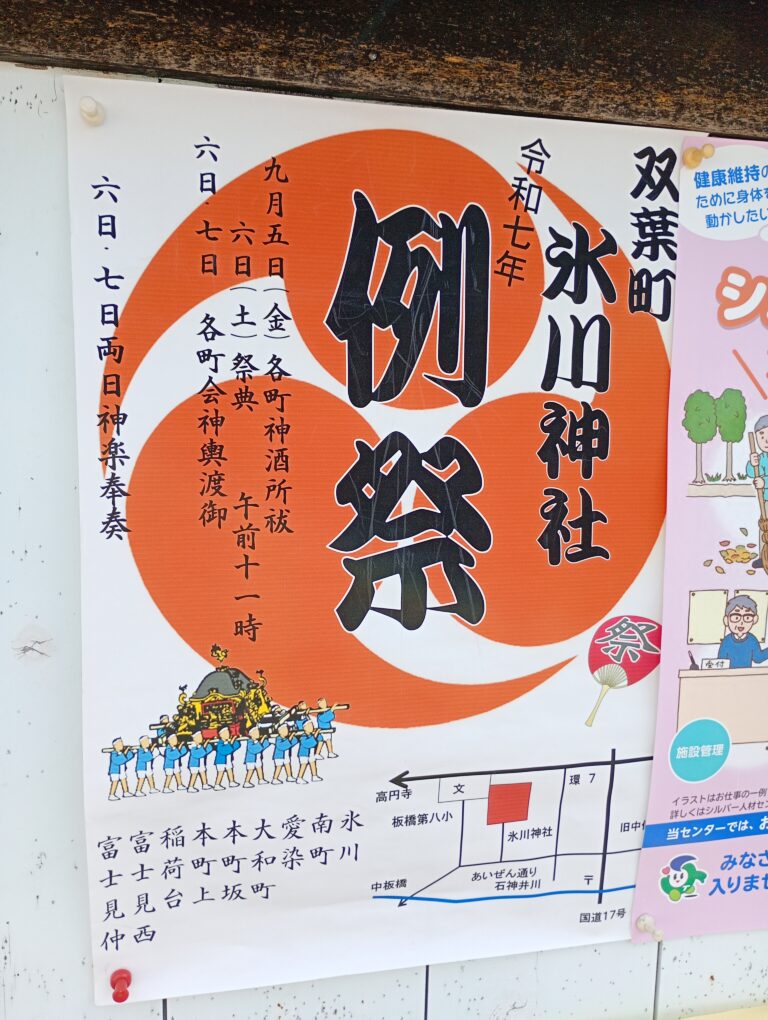 双葉町
氷川神社
令和七年
例祭
九月五日(金)各町神酒所祓
六日(土)祭典 午前十一時
六日・七日 各町会神輿渡御
六日・七日両日神楽奉奏
祭
氷川
南町
愛染
大和町
本町坂
本町上
稲荷台
富士見西
富士見仲
高円寺
文
環7
板橋第八小
氷川神社
あいぜん通り
石神井川
中板橋
〒
国道17号
旧中
健康維持の
ために身体を
動かしたい
シ
受付
施設管理
イラストはお仕事の一例
詳しくはシルバー人材セン
当センターでは、お
みなさ
入りませ